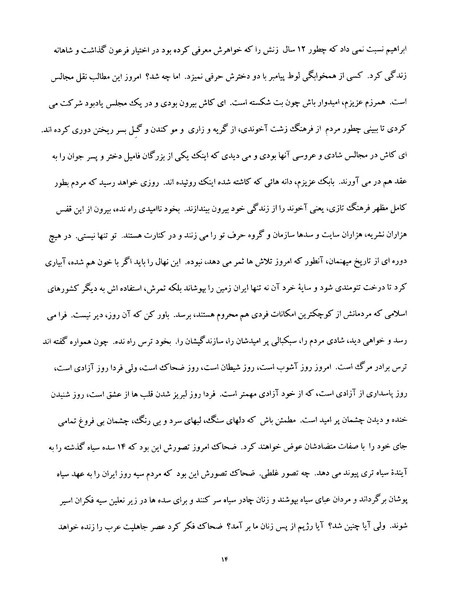 ابراهیم نسبت نمی داد که چطور ۱۲ سال زنش را که خواهرش معرفی کرده بود در اختیار فرعون گذاشت و شاهانه
زندگی کرد. کسی از همخوابگی لوط پیامبر با دو دخترش حرفی نمیزد. اما چه شد؟ امروز این مطالب نقل مجالس
است. همرزم عزیزم، امیدوار باش چون بت شکسته است. ای کاش بیرون بودی و در یک مجلس یادبود شرکت می
کردی تا ببینی چطور مردم از فرهنگ زشت آخوندی، از گریه و زاری و مو کندن و گـِل بسر ریختن دوری کرده اند.
ای کاش در مجالس شادی و عروسی آنها بودی و می دیدی که اینک یکی از بزرگان فامیل دختر و پسر جوان را به
عقد هم در می آورند. بابک عزیزم، دانه هائی که کاشته شده اینک روئیده اند. روزی خواهد رسید که مردم بطور
کامل مظهر فرهنگ تازی، یعنی آخوند را از زندگی خود بیرون بیندازند. بخود ناامیدی راه نده، بیرون از این قفس
هزاران نشریه، هزاران سایت و سدها سازمان و گروه حرف تو را می زنند و در کنارت هستند. تو تنها نیستی. در هیچ
دوره ای از تاریخ میهنمان، آنطور که امروز تلاش ها ثمر می دهد، نبوده. این نهال را باید اگر با خون هم شده، آبیاری
کرد تا درخت تنومندی شود و سایۀ خرد آن نه تنها ایران زمین را بپوشاند بلکه ثمرش، استفاده اش به دیگر کشورهای
اسلامی که مردمانش از کوچکترین امکانات فردی هم محروم هستند، برسد. باور کن که آن روز، دیر نیست. فرا می
رسد و خواهی دید، شادی مردم را، سبکبالی پر امیدشان را، سازندگیشان را. بخود ترس راه نده. چون همواره گفته اند
ترس برادر مرگ است. امروز روز آشوب است، روز شیطان است، روز ضحاک است، ولی فردا روز آزادی است،
روز پاسداری از آزادی است، که از خود آزادی مهمتر است. فردا روز لبریز شدن قلب ها از عشق است، روز شنیدن
خنده و دیدن چشمان پر امید است. مطمئن باش که دلهای سنگ، لبهای سرد و بی رنگ، چشمان بی فروغ تمامی
جای خود را با صفات متضادشان عوض خواهند کرد. ضحاک امروز تصورش این بود که ۱۴ سده سیاه گذشته را به
آیندۀ سیاه تری پیوند می دهد. چه تصور غلطی. ضحاک تصورش این بود که مردم سیه روز ایران را به عهد سیاه
پوشان برگرداند و مردان عبای سیاه بپوشند و زنان چادر سیاه سر کنند و برای سده ها در زیر نعلین سیه فکران اسیر
شوند. ولی آیا چنین شد؟ آیا رژیم از پس زنان ما بر آمد؟ ضحاک فکر کرد عصر جاهلیت عرب را زنده خواهد
۱۴